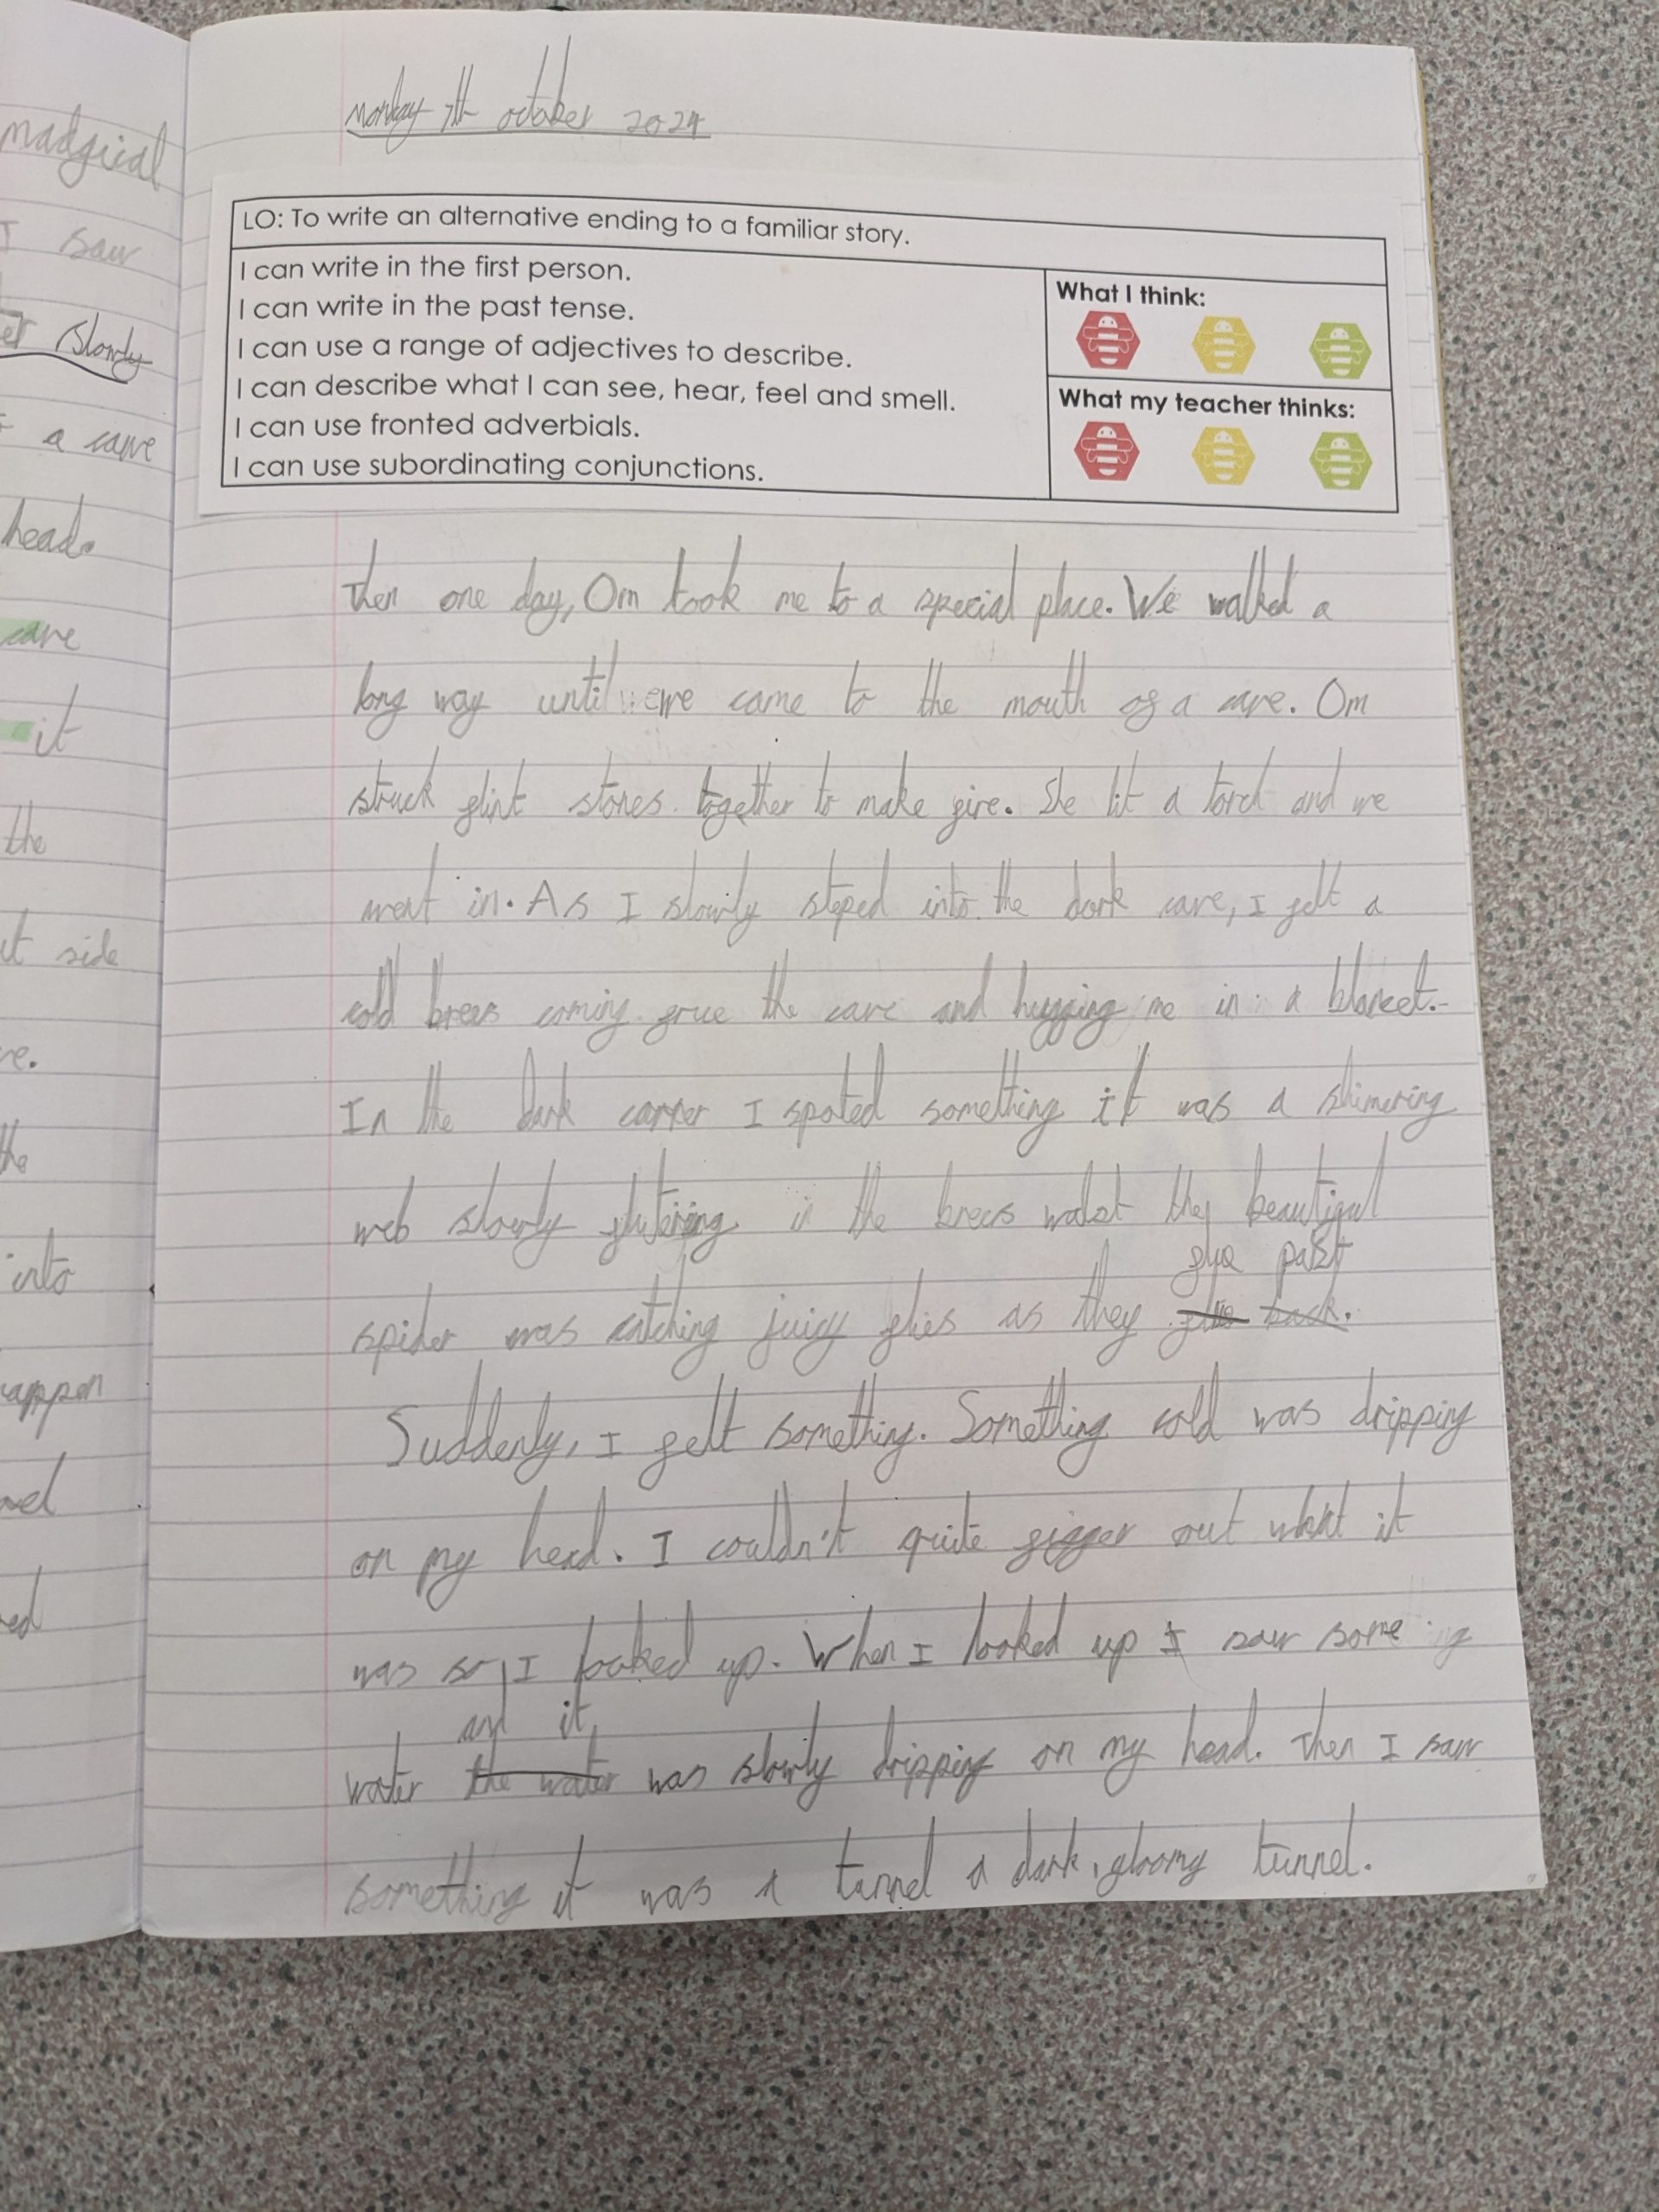 madgical
I saw
er slowly
a cave
head.
cave
it
the
it side
re.
the
into
appen
ed
Monday 7th october 2024
LO: To write an alternative ending to a familiar story.
I can write in the first person.
I can write in the past tense.
I can use a range of adjectives to describe.
I can describe what I can see, hear, feel and smell.
I can use fronted adverbials.
I can use subordinating conjunctions.
What I think:
What my teacher thinks:
Then one day, Om took me to a special place. We walked a
long way until we came to the mouth of a cave. Om
struck flint stones together to make fire. She lit a torch and we
went in. As I slowly steped into the dark cave, I felt a
cold brees coming frue the cave and hugging me in a blancet.
In the dark corner I spoted something it was a shimering
web slowly flutering in the brees walst they beautiful
flue past
spider was catching juicy flies as they flue back.
Suddenly, I felt something. Something cold was dripping
on my head. I couldn't quite figger out what it
was so I looked up. When I looked up I saw some
and it
water the water was slowly dripping on my head. Then I saw
something it was a tunnel a dark, gloomy tunnel.